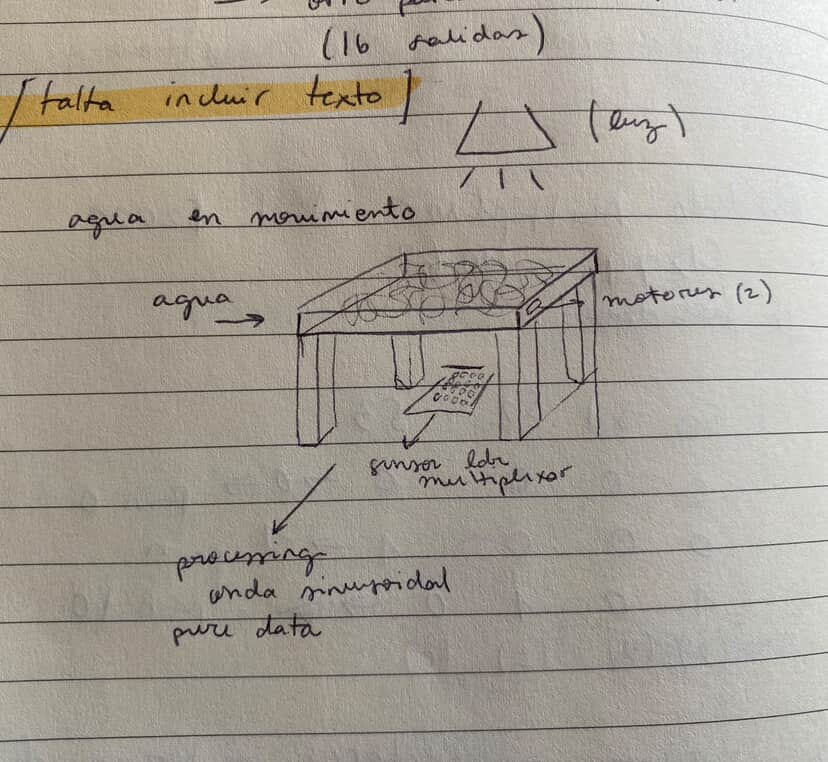 (16 salidas)
[falta incluir texto]
(luz)
agua en movimiento
agua
motores (2)
sensor ldr
multiplexor
processing
onda sinusoidal
pure data